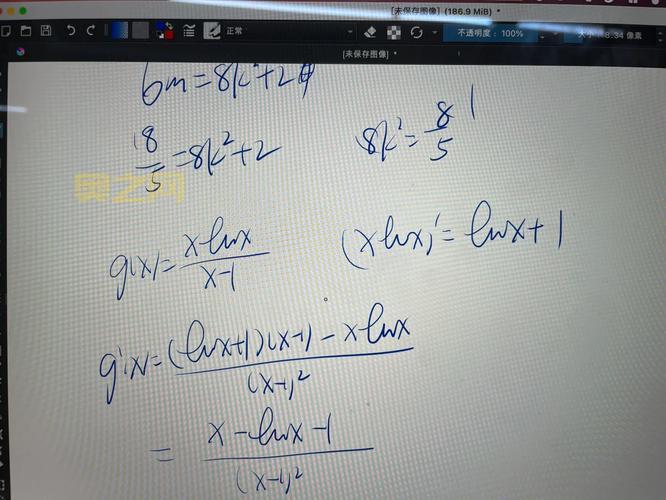 [未保存图像] (186.9 MiB) *
正常
不透明度: 100%
8.34 像素
[未保存图像] *
6m=8k²+2
18/5=8k²+2
8k²=8/5
g(x)=xlnx/(x-1)
(xlnx)'=lnx+1
g'(x)=((lnx+1)(x-1)-xlnx)/(x-1)²
=(x-lnx-1)/(x-1)²